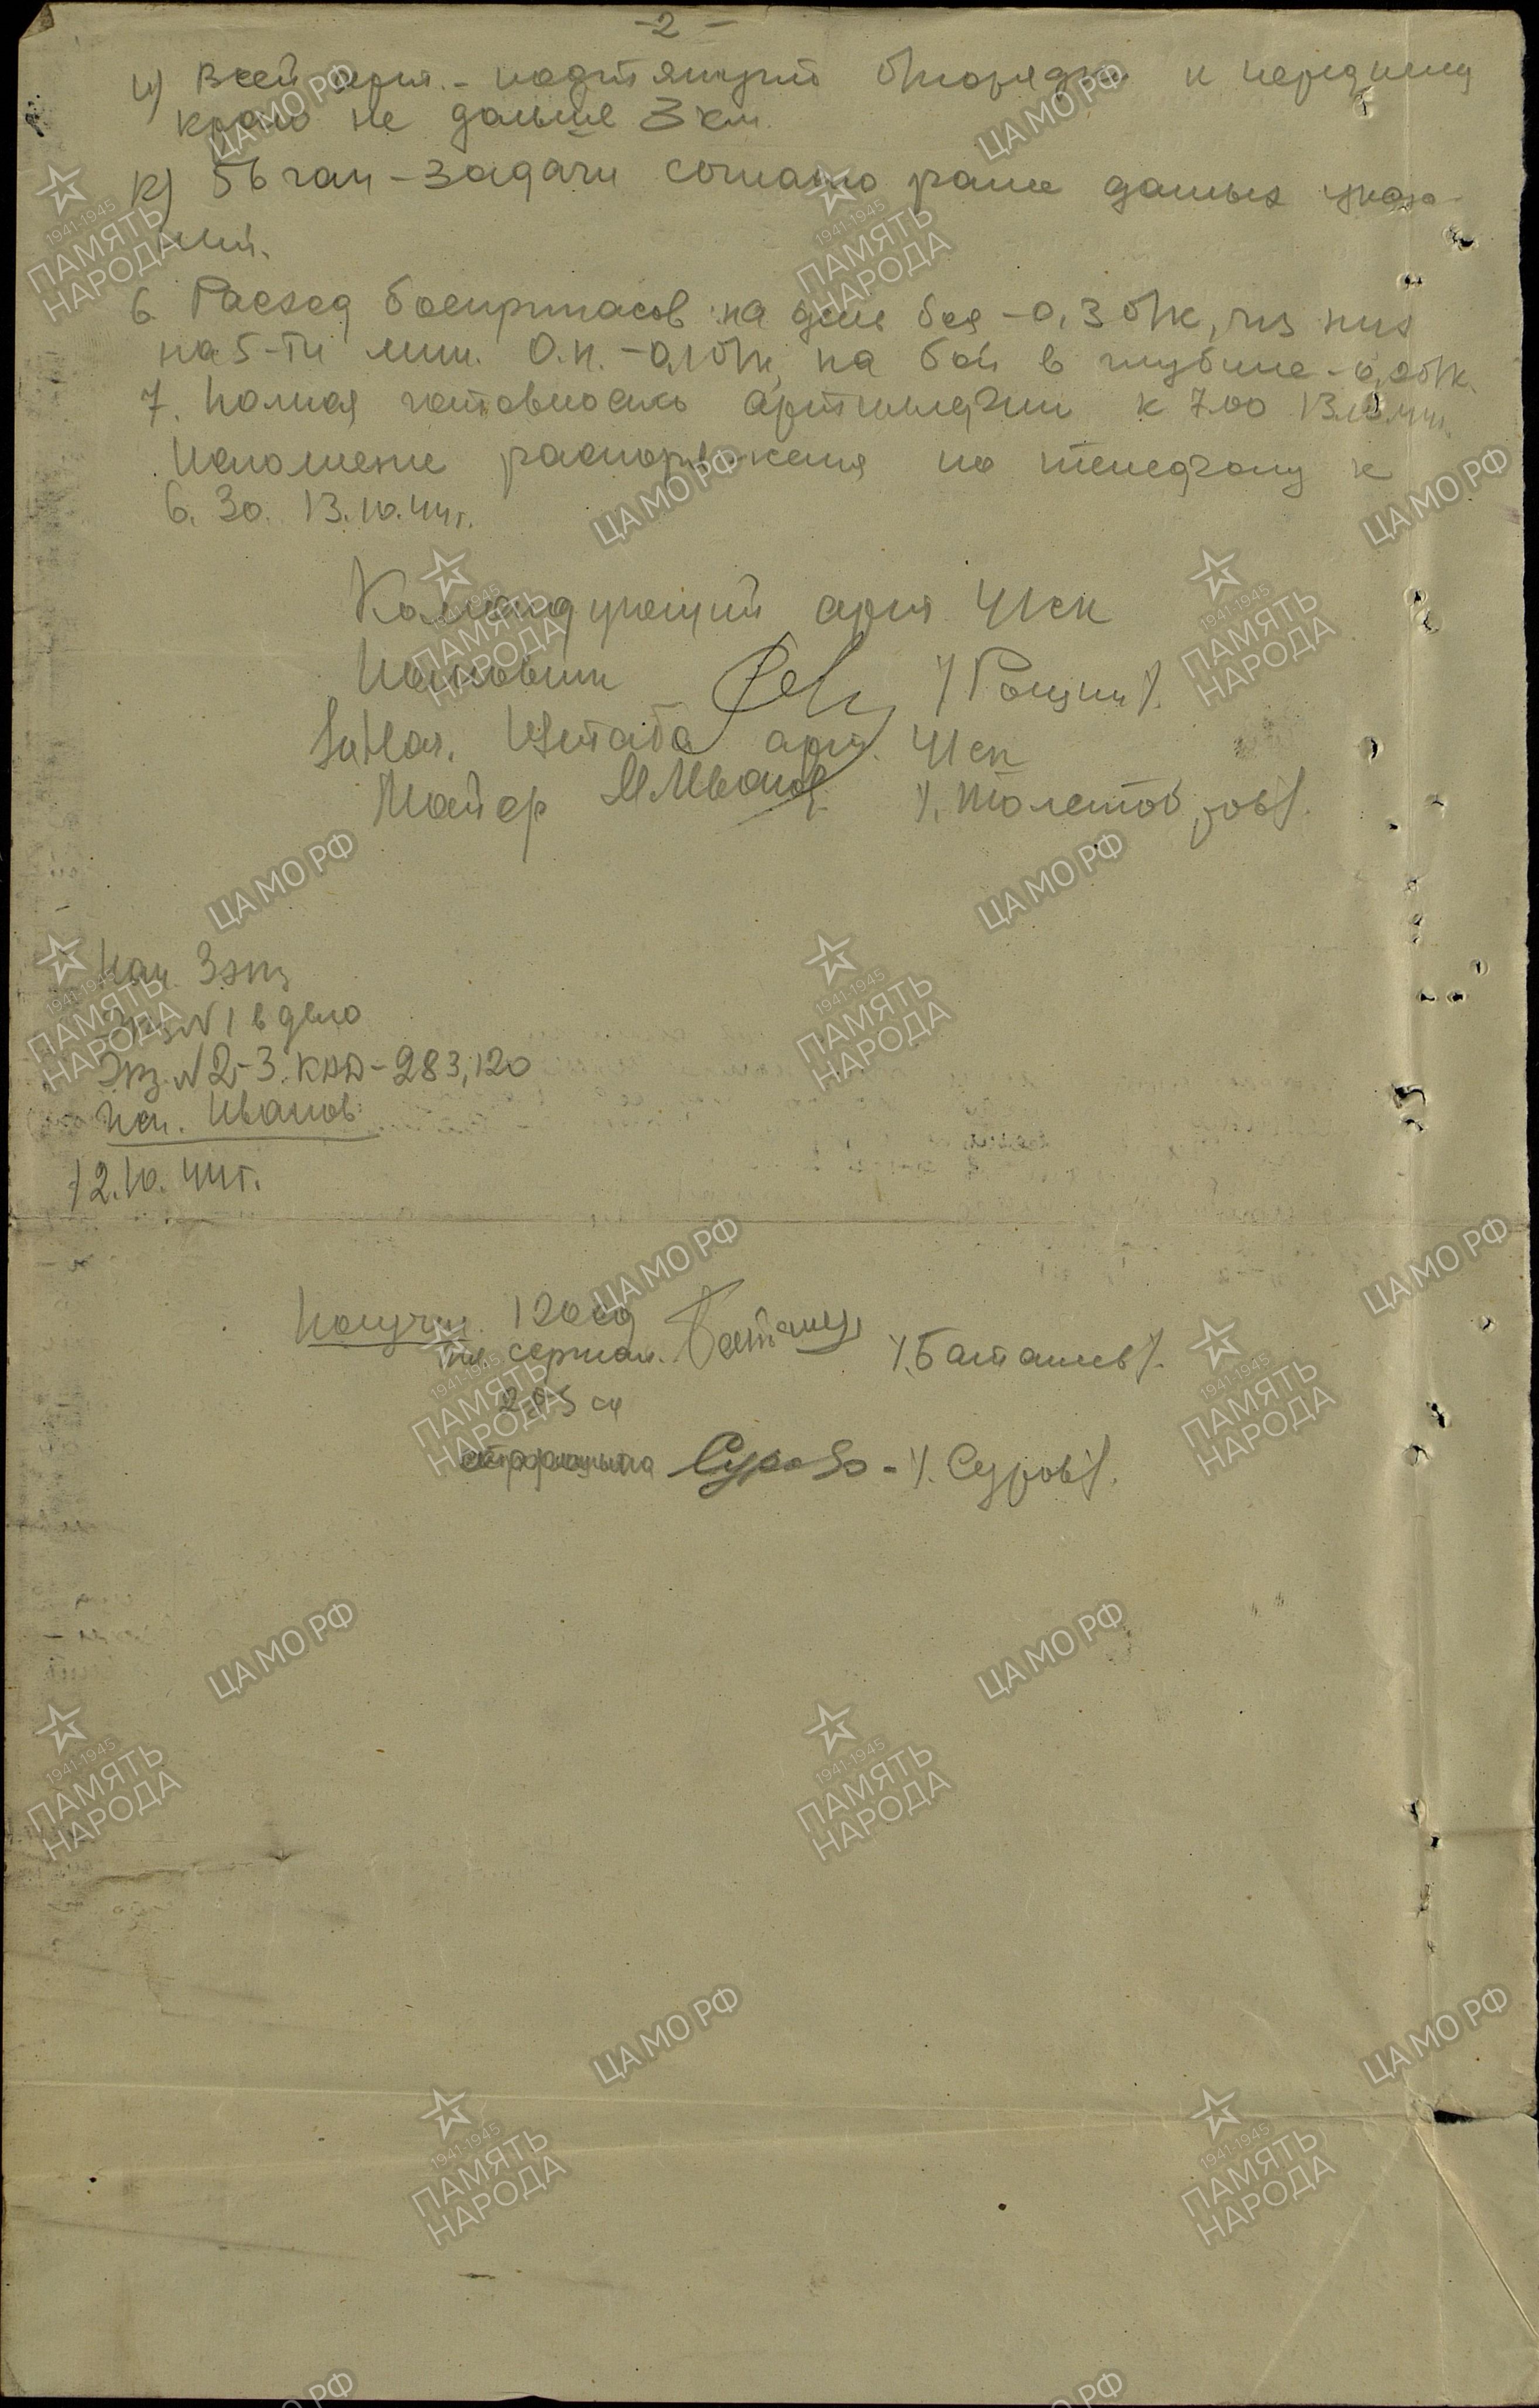 -2-
и) Всей арт. - подтянуть б/порядки к переднему
краю не дальше 3 км.
к) 56 гап - задачи согласно ранее данных указа-
ний.
6. Расход боеприпасов на день боя - 0,3 б/к, из них
на 5-ти мин. О.Н. - 0,1 б/к, на бой в глубине - 0,2 б/к.
7. Полная готовность артиллерии к 7.00 13.10.44г.
Исполнение распоряжения по телефону к
6.30. 13.10.44г.
Командующий арт. 41ск
Полковник /Рощин/.
Нач. Штаба арт. 41ск
Майор
Нап. 3 экз
Экз N 1 в дело
Экз. N 2-3. КАД - 283, 120
Исп. Иванов
12.10.44г.
Получил 120 сд
мл. сержан. /Баташев/.
283 сд
Суров - /Суров/.